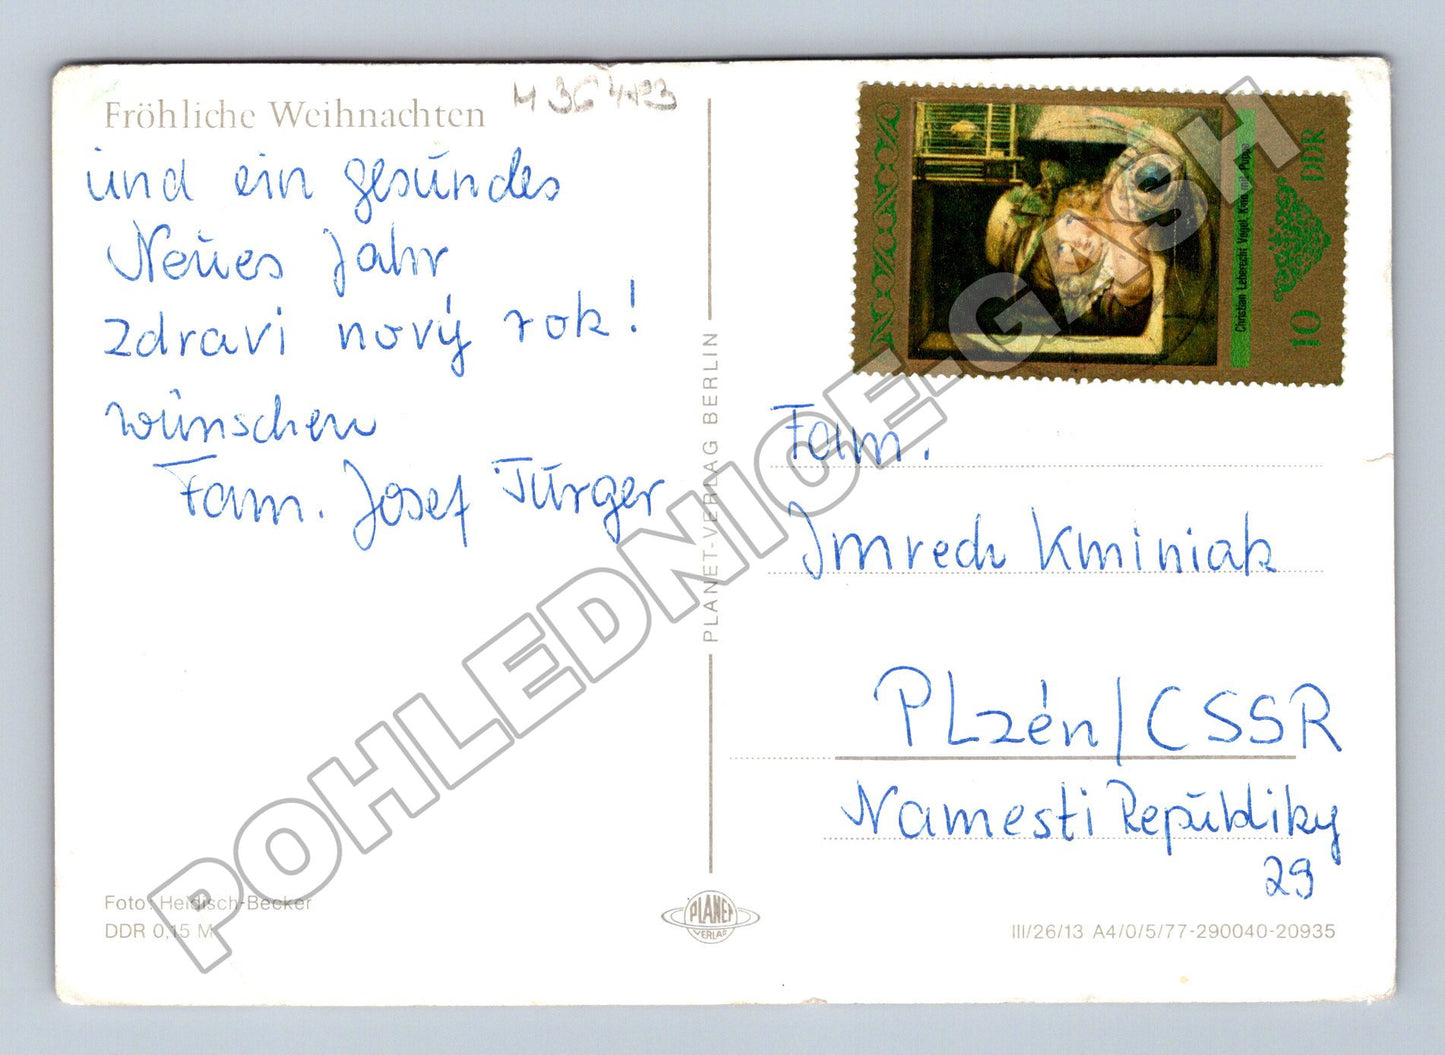 Fröhliche Weihnachten
und ein gesundes
Neues Jahr
zdravi nový rok!
wünschen
Fam. Josef Türger
Foto: Heidisch-Becker
DDR 0,15 M
PLANET-VERLAG BERLIN
PLANET
VERLAG
Christian Leberecht Vogel, Knabe mit Puppe
10 DDR
Fam.
Jmrech Kminiak
PLzén/CSSR
Namesti Repŭbliky
29
III/26/13 A4/0/5/77-290040-20935
POHLEDNICE-GASH